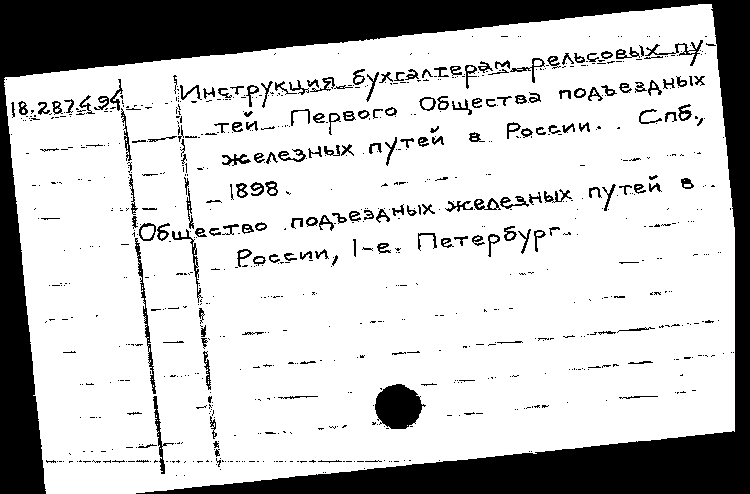 18.287.4.94
Инструкция бухгалтерам рельсовых пу-
тей Первого Общества подъездных
железных путей в России. Спб.,
1898.
Общество подъездных железных путей в
России, 1-е. Петербург.